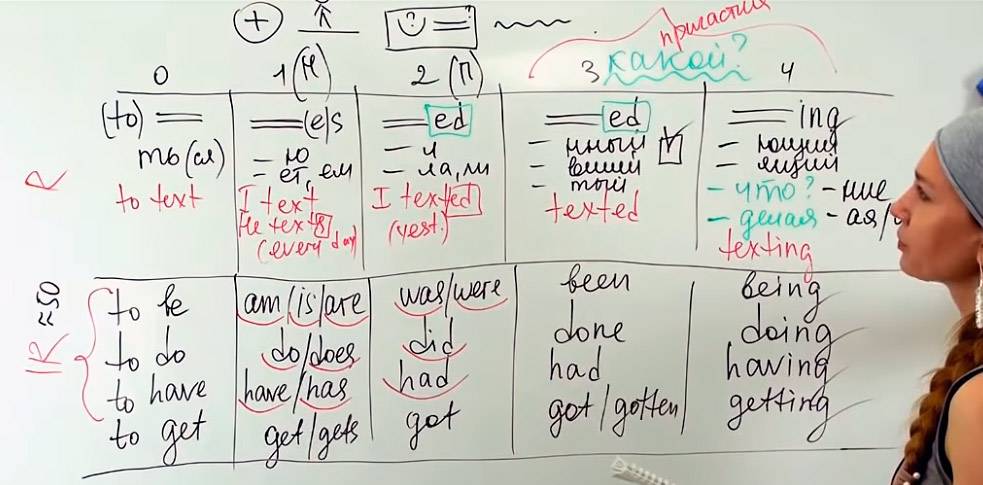 причастия
какой?
0 1(Н) 2(П) 3 4
(to) (e)s ed ed ing
ть(ся) - ю - л - нный - ющий
- ет, ем - ла, ли - вший - ящий
- тый - что? - ние
- делая - ая/
R to text I text I texted texted texting
He texts (yest.)
(every day)
to be am/is/are was/were been being
IR ≈50 to do do/does did done doing
to have have/has had had having
to get get/gets got got/gotten getting